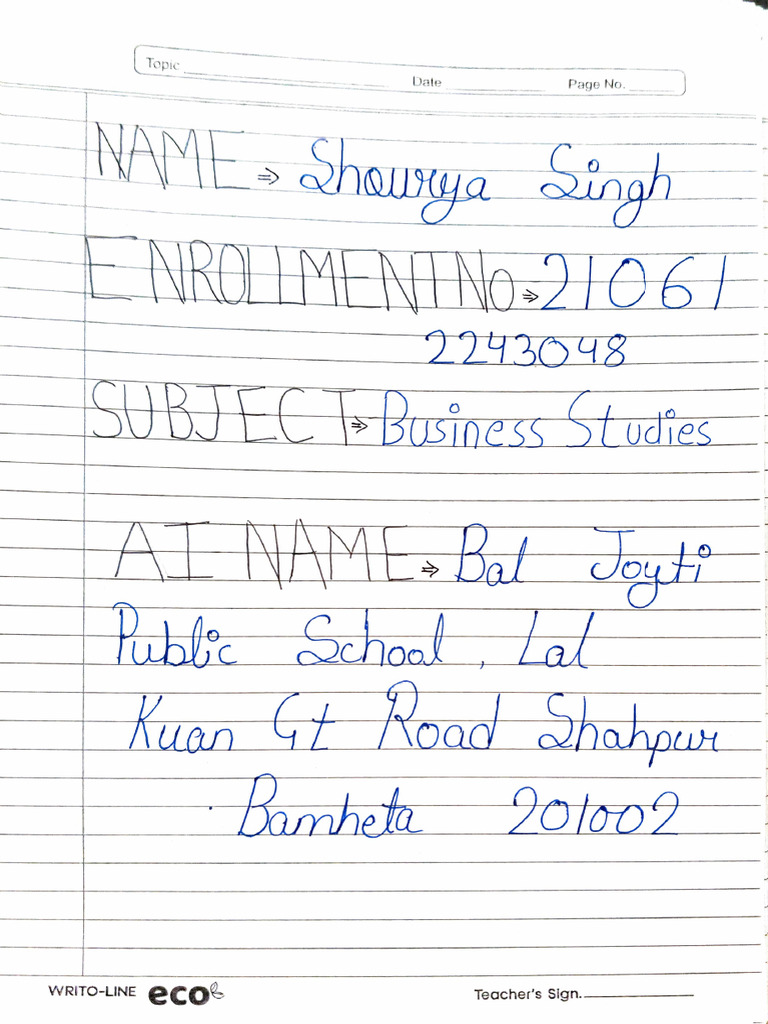 Topic
Date
Page No.
NAME ⇒ Shourya Singh
ENROLLMENT No ⇒ 21061
2243048
SUBJECT ⇒ Business Studies
AI NAME ⇒ Bal Joyti
Public School, Lal
Kuan Gt Road Shahpur
Bamheta 201002
WRITO-LINE eco
Teacher's Sign.